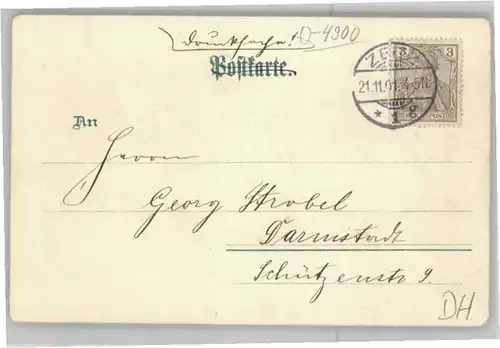 Drucksache! D-4900
Postkarte.
3 3
21.11.01. 4-5N.
* 1 g
An
Herrn
Georg Strobel
Darmstadt
Schützenstr 9.
DH.